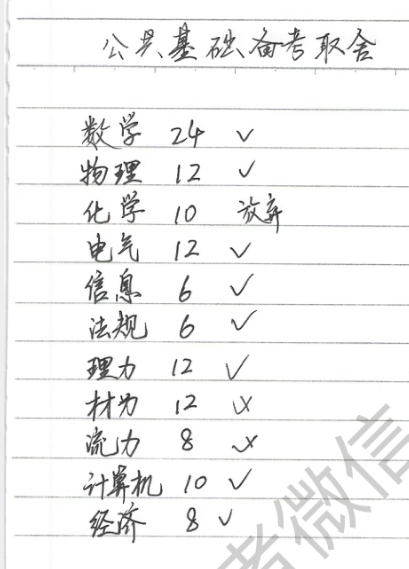 公共基础备考取舍
数学 24 ✓
物理 12 ✓
化学 10 放弃
电气 12 ✓
信息 6 ✓
法规 6 ✓
理力 12 ✓
材力 12 ✗
流力 8 ✗
计算机 10 ✓
经济 8 ✓
者微信